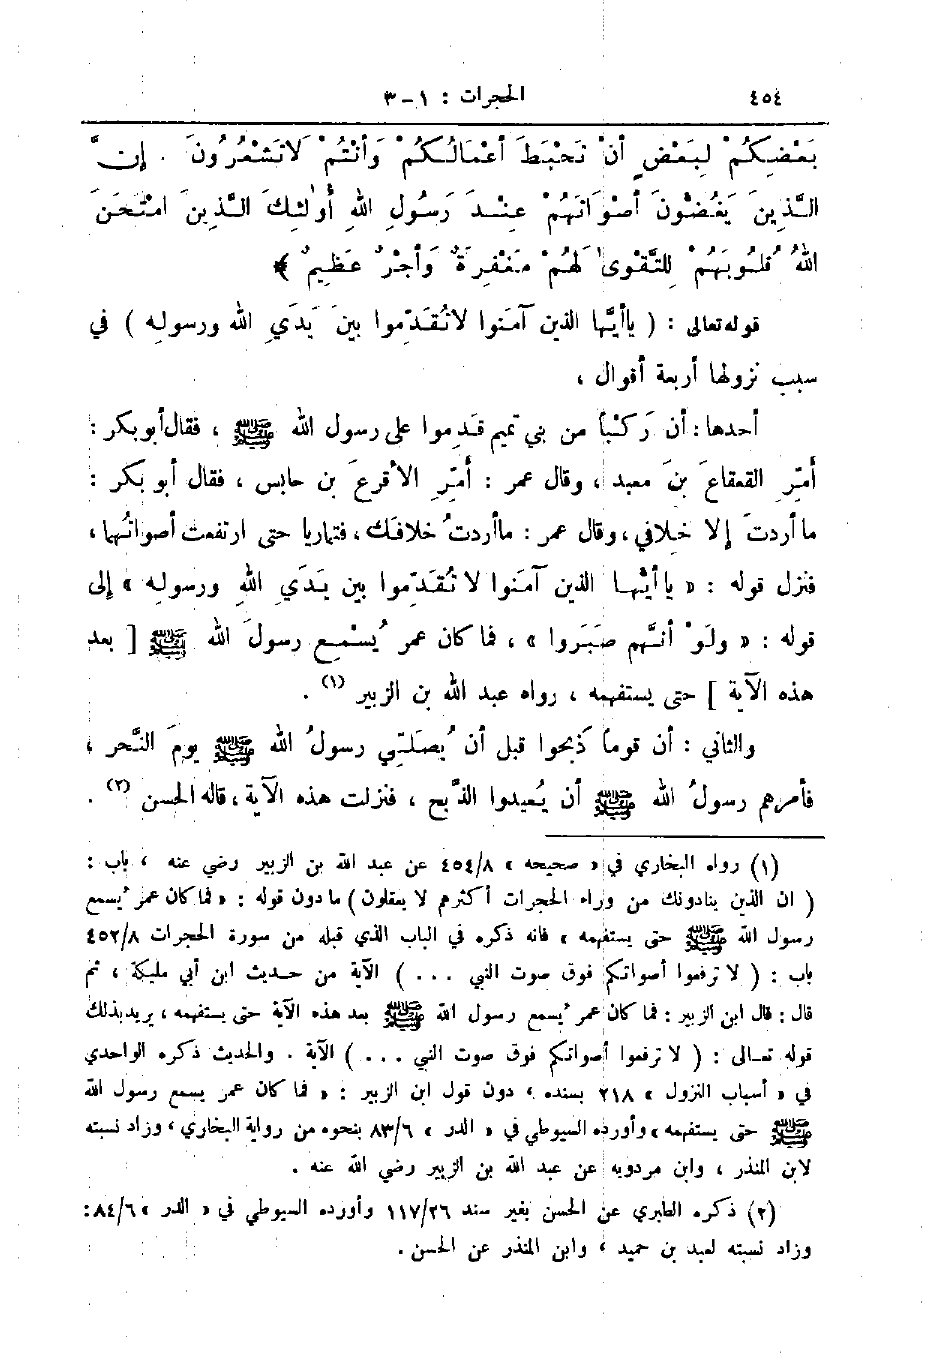 ٤٥٤ الحجرات : ١ – ٣
بَعْضِكُمْ لِبَعْضٍ أَنْ تَحْبَطَ أَعْمَالُكُمْ وَأَنْتُمْ لَاتَشْعُرُونَ . إِنَّ
الَّذِينَ يَغُضُّونَ أَصْوَاتَهُمْ عِنْدَ رَسُولِ اللهِ أُولٰئِكَ الَّذِينَ امْتَحَنَ
اللهُ قُلُوبَهُمْ لِلتَّقْوىٰ لَهُمْ مَغْفِرَةٌ وَأَجْرٌ عَظِيمٌ ﴾
قوله تعالى : ( ياأيُّها الذين آمَنوا لاتُقَدِّموا بينَ يَدَيِ الله ورسولِه ) في
سبب نزولها أربعة أقوال ،
أحدها : أن رَكْباً من بني تميم قَدِموا على رسول الله ﷺ ، فقال أبو بكر :
أَمِّرِ القعقاعَ بنَ معبد ، وقال عمر : أَمِّرِ الأقرعَ بن حابس ، فقال أبو بكر :
ماأردتَ إلا خِلافي ، وقال عمر : ماأردتُ خلافَك ، فتماريا حتى ارتفعت أصواتُهما ،
فنزل قوله : « ياأيُّها الذين آمَنوا لاتُقَدِّموا بين يَدَيِ اللهِ ورسولِه » إلى
قوله : « ولَوْ أنَّهم صَبَروا » ، فما كان عمر يُسْمِع رسولَ الله ﷺ [ بعد
هذه الآية ] حتى يستفهمه ، رواه عبد الله بن الزبير (١) .
والثاني : أن قوماً ذَبحوا قبل أن يُصَلِّيَ رسولُ الله ﷺ يومَ النَّحر ،
فأمرهم رسولُ الله ﷺ أن يُعيدوا الذَّبح ، فنزلت هذه الآية ، قاله الحسن (٢) .
(١) رواه البخاري في « صحيحه » ٤٥٤/٨ عن عبد الله بن الزبير رضي عنه ، باب :
( ان الذين ينادونك من وراء الحجرات أكثرهم لا يعقلون ) مادون قوله : « فما كان عمر يُسمع
رسول الله ﷺ حتى يستفهمه » فانه ذكره في الباب الذي قبله من سورة الحجرات ٤٥٢/٨
باب : ( لا ترفعوا أصواتكم فوق صوت النبي . . . ) الآية من حديث ابن أبي مليكة ، ثم
قال : قال ابن الزبير : فما كان عمر يُسمع رسول الله ﷺ بعد هذه الآية حتى يستفهمه ، يريد بذلك
قوله تعالى : ( لا ترفعوا أصواتكم فوق صوت النبي . . . ) الآية . والحديث ذكره الواحدي
في « أسباب النزول » ٢١٨ بسنده ، دون قول ابن الزبير : « فما كان عمر يسمع رسول الله
ﷺ حتى يستفهمه » وأورده السيوطي في « الدر » ٨٣/٦ بنحوه من رواية البخاري ، وزاد نسبته
لابن المنذر ، وابن مردويه عن عبد الله بن الزبير رضي الله عنه .
(٢) ذكره الطبري عن الحسن بغير سند ١١٧/٢٦ وأورده السيوطي في « الدر » ٨٤/٦ :
وزاد نسبته لعبد بن حميد ، وابن المنذر عن الحسن .